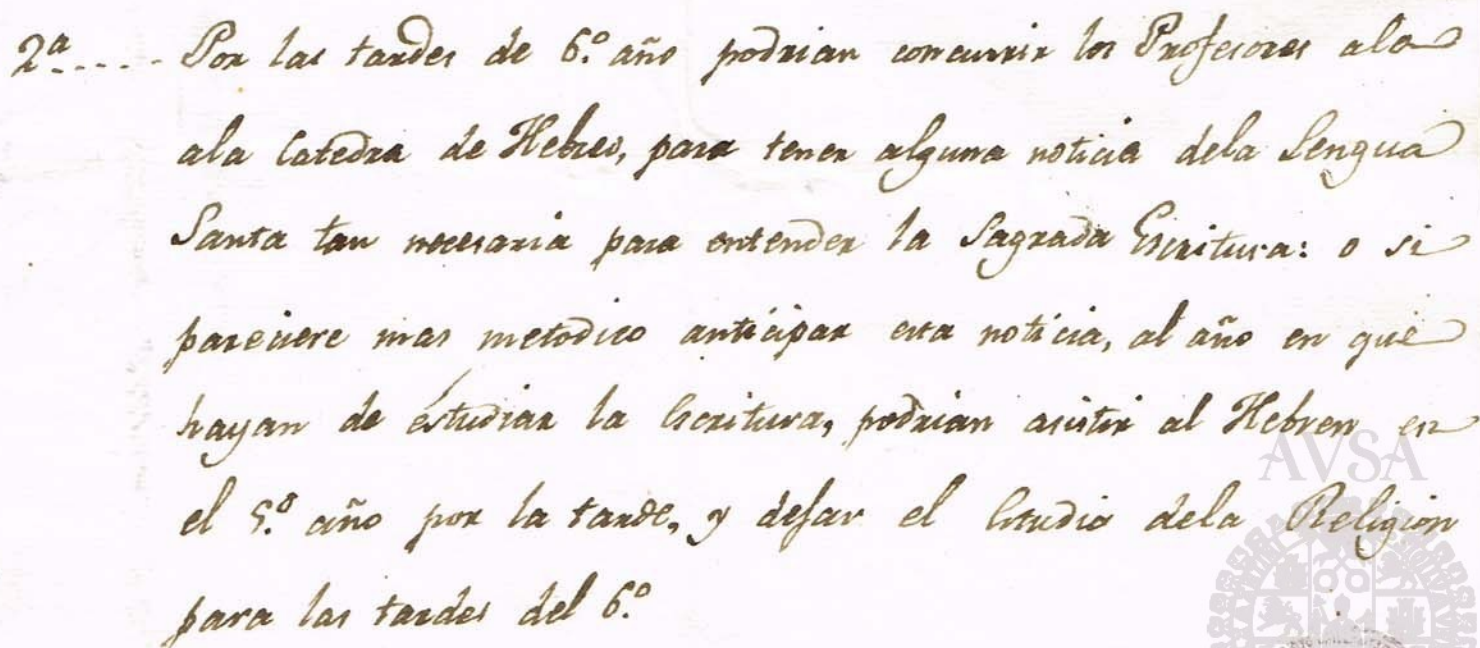 2ª..... Por las tardes de 6.º año podrian concurrir los Profesores ala
ala Catedra de Hebreo, para tener alguna noticia dela Lengua
Santa tan necesaria para entender la Sagrada Escritura: o si
pareciere mas metodico anticipar esta noticia, al año en que
hayan de estudiar la Escritura, podrian asistir al Hebreo en
el 5.º año por la tarde, y dejar el Estudio dela Religion
para las tardes del 6.º
AVSA